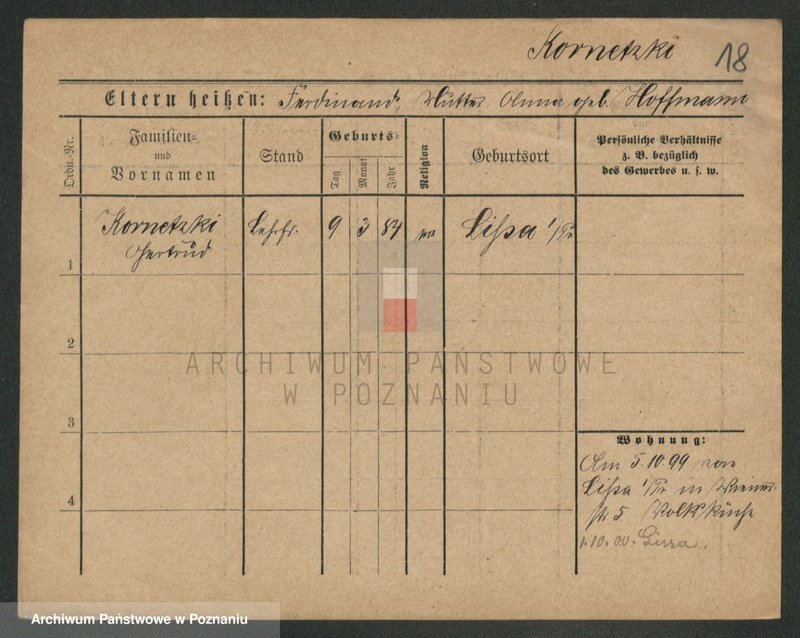 Kornetzki 18
Eltern heißen: Ferdinand, Mutter Anna geb. Hoffmann
Ordn.-Nr.
Familien-
und
Vornamen
Stand
Geburts-
Tag
Monat
Jahr
Religion
Geburtsort
Persönliche Verhältnisse
z. B. bezüglich
des Gewerbes u. s. w.
Kornetzki 9 3 84 ev Lißa i/Pr
Gertrud
1
2
ARCHIWUM PAŃSTWOWE
W POZNANIU
3
Wohnung:
Am 5.10.99 von
Lißa i/Pr in Wiener-
4
str 5 Volksküche
1.10.00. Lissa.
Archiwum Państwowe w Poznaniu